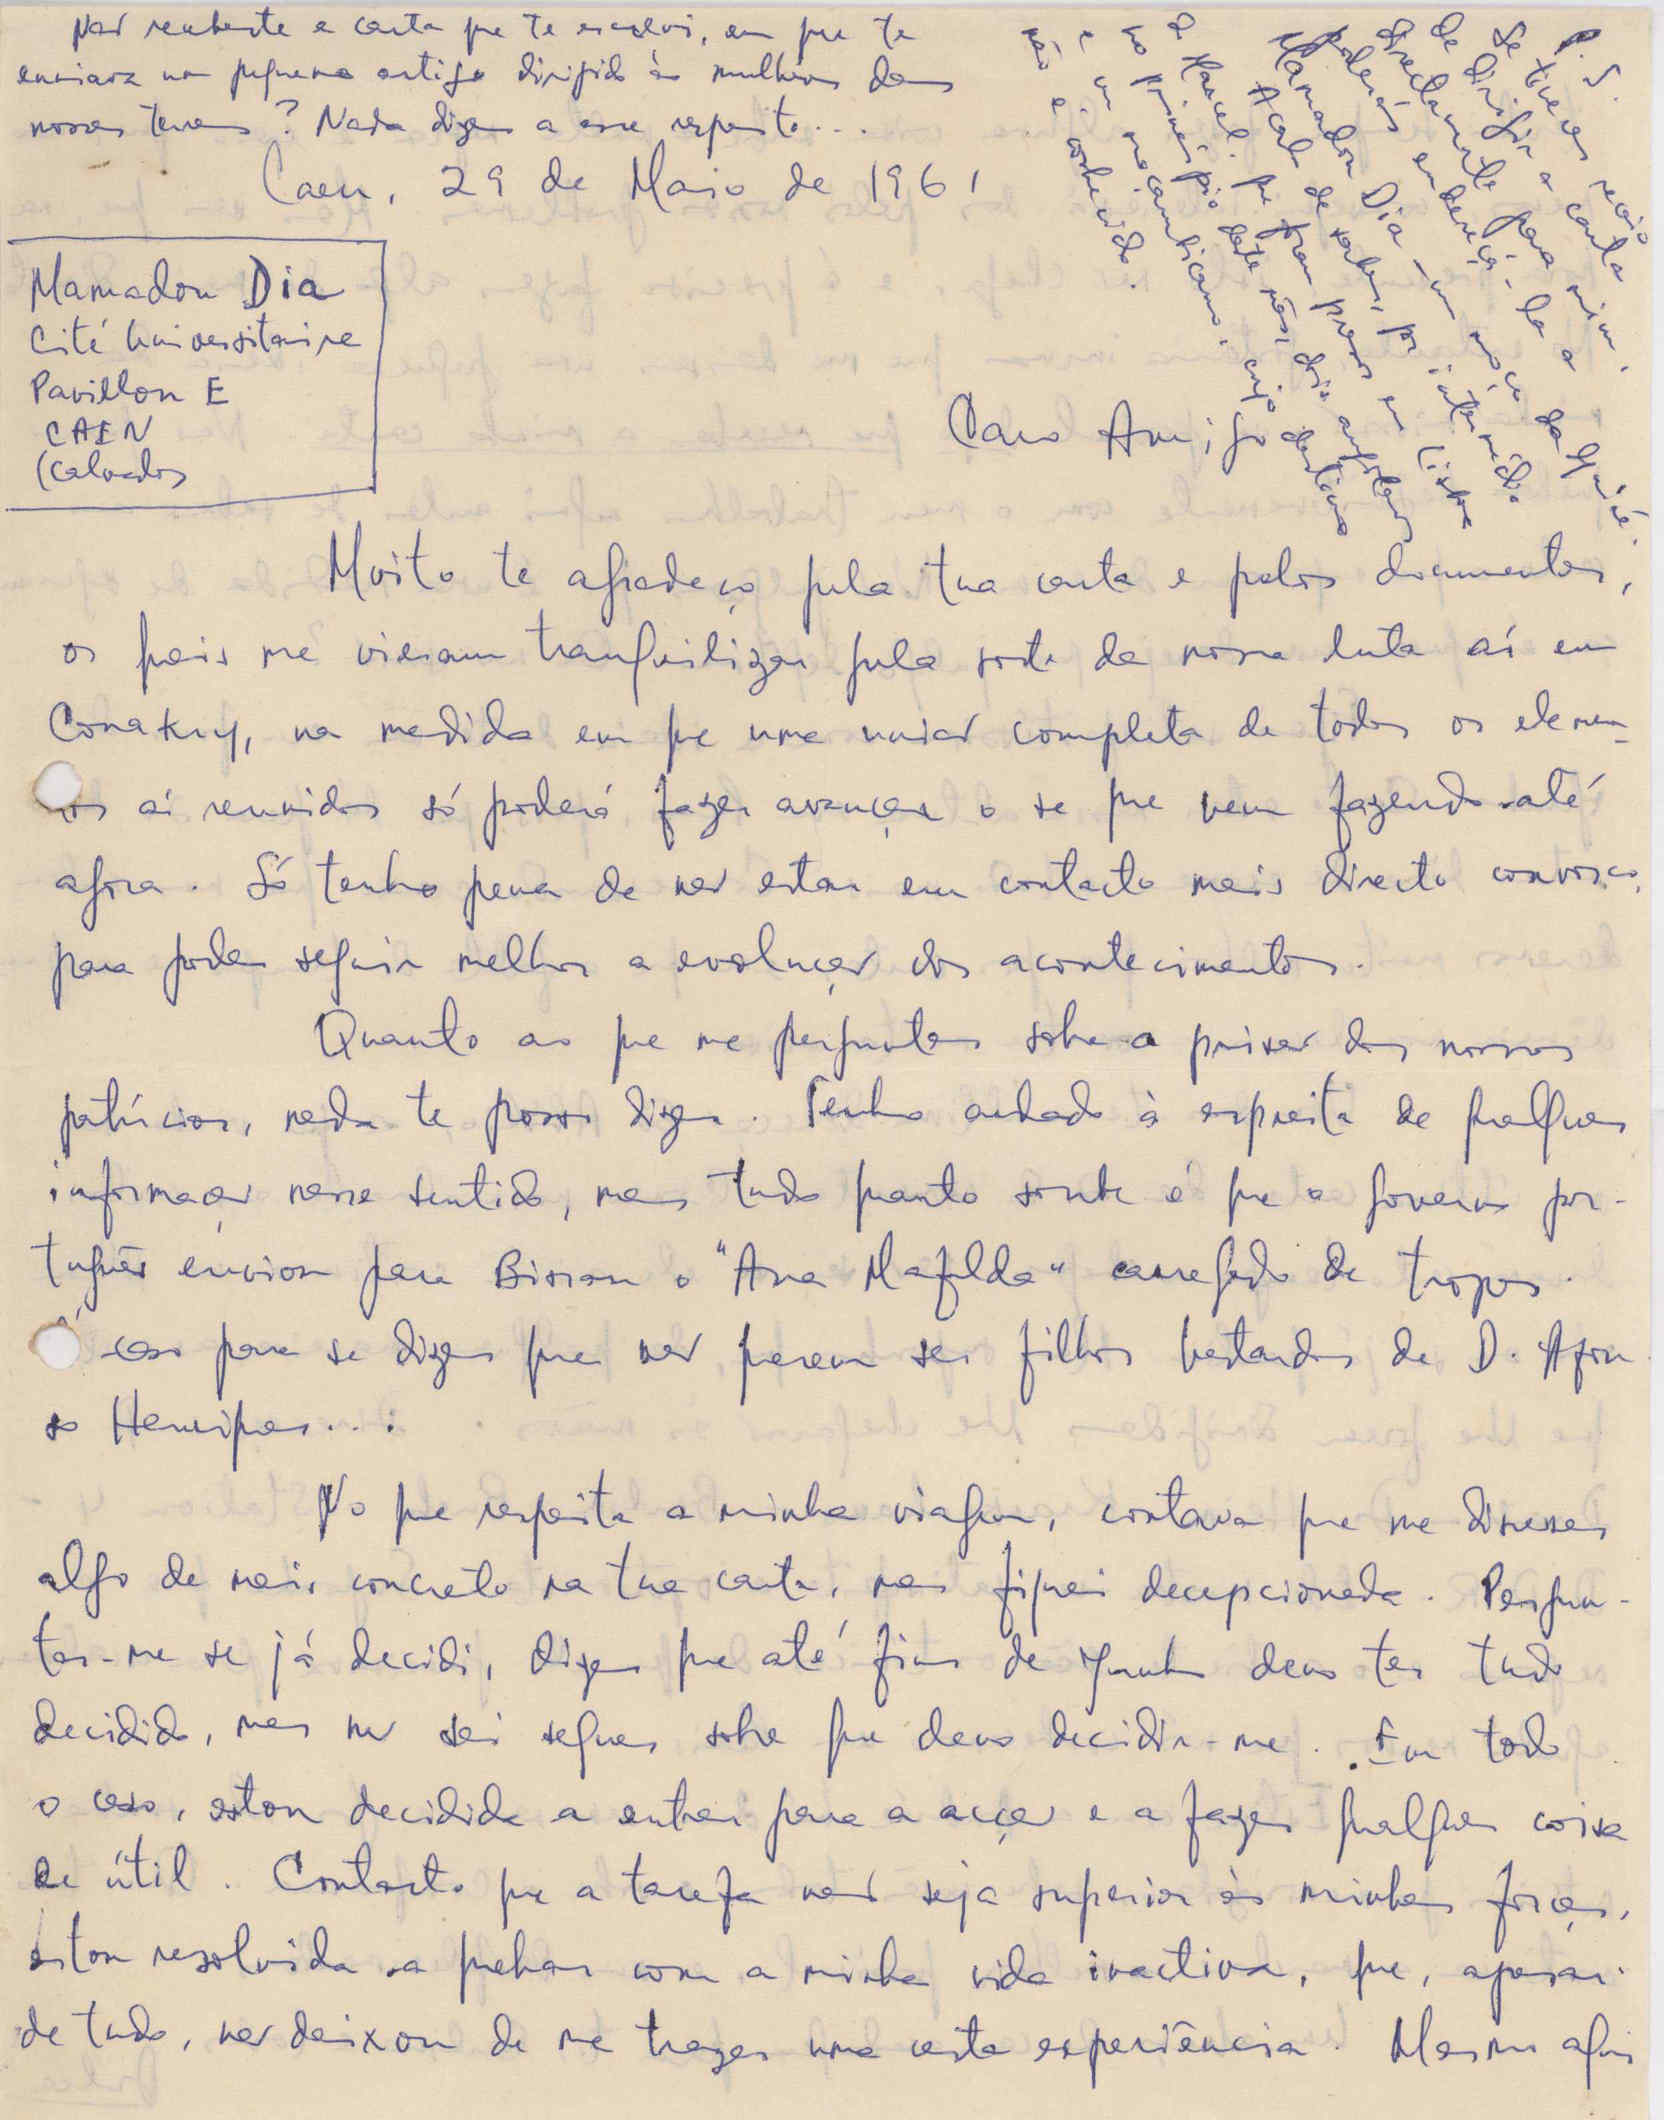 Não recebeste a carta que te escrevi, em que te
enviava um pequeno artigo dirigido às mulheres das
nossas terras? Nada dizes a esse respeito...
Caen, 29 de Maio de 1961
P.S.
Se tiveres receio
de dirigir a carta
directamente para mim,
poderás endereçá-la a
Mamadou Dia - um moço da Guiné.
Acabo de saber, por intermédio
de Marcel, que foram presos em Lisboa
no princípio deste mês, dois angolanos
e um moçambicano, cujo destino
não é conhecido.
Mamadou Dia
Cité Universitaire
Pavillon E
CAEN
(Calvados
Caro Amigo
Muito te agradeço pela tua carta e pelos documentos,
os quais me vieram tranquilizar pela sorte da nossa luta aí em
Conakry, na medida em que uma união completa de todos os elemen-
tos aí reunidos só poderá fazer avançar o se que vem fazendo até
agora. Só tenho pena de não estar em contacto mais directo convosco,
para poder seguir melhor a evolução dos acontecimentos.
Quanto ao que me perguntas sobre a prisão dos nossos
patrícios, nada te posso dizer. Tenho andado à espreita de qualquer
informação nesse sentido, mas tudo quanto soube é que o governo por-
tuguês enviou para Bissau o "Ana Mafalda" carregado de tropas.
É caso para se dizer que não querem ser filhos bastardos de D. Afon-
so Henriques...
No que respeita a minha viagem, contava que me dissesses
algo de mais concreto na tua carta, mas fiquei decepcionada. Pergun-
tas-me se já decidi, dizes que até fins de Junho devo ter tudo
decidido, mas não sei sequer sobre que devo decidir-me. Em todo
o caso, estou decidida a entrar para a acção e a fazer qualquer coisa
de útil. Contanto que a tarefa não seja superior às minhas forças,
estou resolvida a quebrar com a minha vida inactiva, que, apesar
de tudo, não deixou de me trazer uma certa experiência. Mesmo aqui